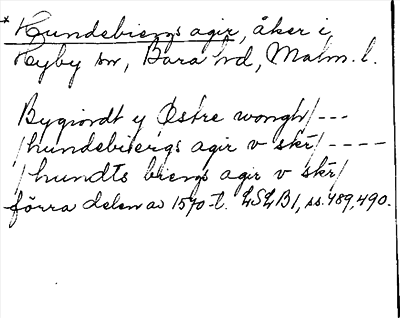 * Hundebiergs agir, åker i
Hyby sn, Bara hd, Malm. l.
Bygiordt y Østre wongh/---
/hundebiergs agir v skr/----
/hundts biergs agir v skr/
förra delen av 1570-t. LSLB1, ss. 489, 490.